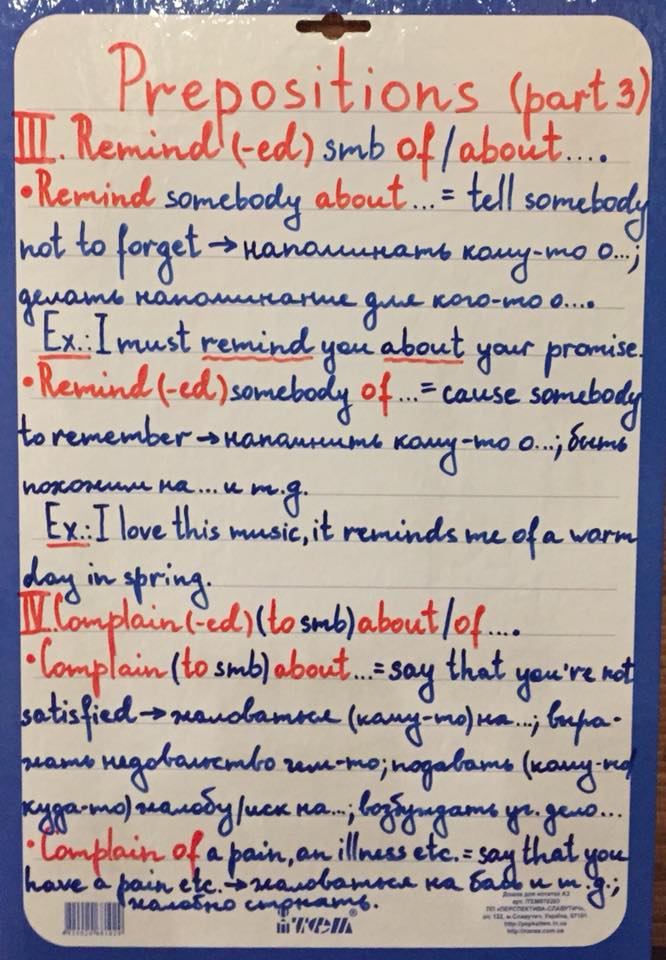 Prepositions (part 3)
III. Remind (-ed) smb of/about....
• Remind somebody about ... = tell somebody
not to forget → напоминать кому-то о...;
делать напоминание для кого-то о....
Ex.: I must remind you about your promise.
• Remind (-ed) somebody of ... = cause somebody
to remember → напомнить кому-то о...; быть
похожим на... и т.д.
Ex.: I love this music, it reminds me of a warm
day in spring.
IV. Complain (-ed) (to smb) about/of ....
• Complain (to smb) about ... = say that you're not
satisfied → жаловаться (кому-то) на...; выра-
жать недовольство чем-то; подавать (кому-то/
куда-то) жалобу/иск на...; возбуждать уг. дело...
• Complain of a pain, an illness etc. = say that you
have a pain etc. → жаловаться на боль и т.д.;
жалобно
Дошка для нотаток А3
ПП «ПЕРСПЕКТИВА-СЛАВУТИЧ»,
а/с 132, м.Славутич, Україна, 07101